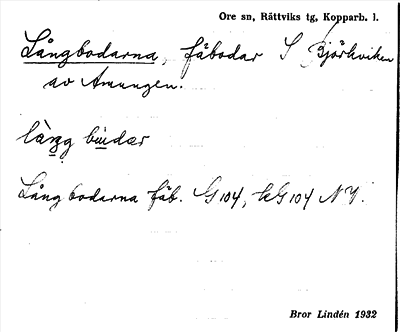 Ore sn, Rättviks tg, Kopparb. l.
Långbodarna, fäbodar S Björkviken
av Amungen.
làng bùdar
Långbodarna fäb. G 104, kG 104 NV.
Bror Lindén 1932